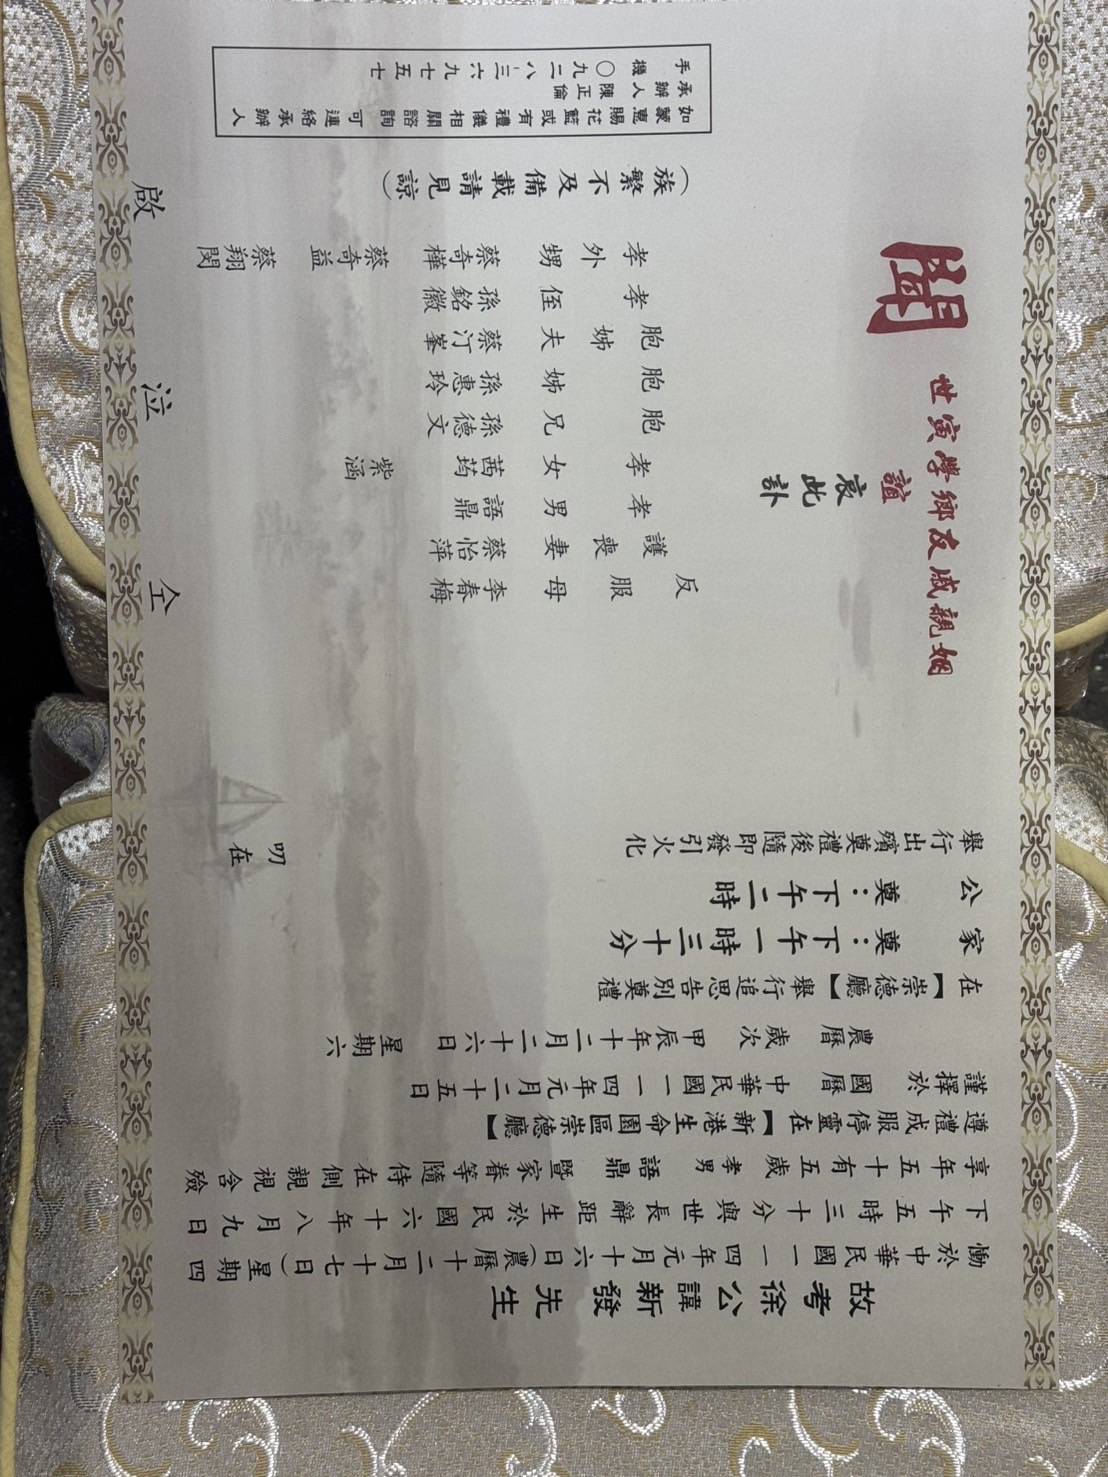 故考徐公諱新發先生
慟於中華民國一一四年元月十六日（農曆十二月十七日）星期四
下午五時三十分與世長辭距生於民國六十年八月九日
享年五十有五歲孝男語鼎暨家眷等隨侍在側親視含殮
遵禮成服停靈在【新港生命園區崇德廳】
謹擇於國曆中華民國一一四年元月二十五日
農曆歲次甲辰年十二月二十六日星期六
在【崇德廳】舉行追思告別奠禮
家奠：下午一時三十分
公奠：下午二時
舉行出殯奠禮後隨即發引火化
叨在
姻親戚友鄉學寅世誼
哀此訃
聞
反服母李春梅
護喪妻蔡怡萍
孝男語鼎
孝女茜筠紫涵
胞兄孫德文
胞姊孫惠玲
胞姊夫蔡汀峯
孝侄孫銘徽
孝外甥蔡奇樺蔡奇益蔡翔閔
（族繁不及備載請見諒）
仝泣啟
如蒙惠賜花籃或有禮儀相關諮詢可連絡承辦人
承辦人陳正倫
手機〇九二八‧三六九七五七